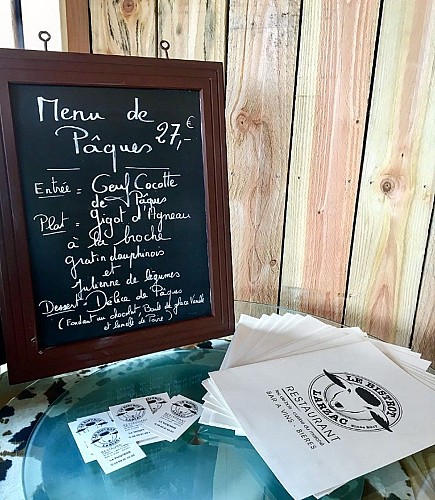 Menu de
Pâques 27,-€
Entrée = Oeuf Cocotte
de Pâques
Plat = Gigot d'Agneau
à la broche
gratin dauphinois
et
Julienne de légumes
Dessert = Délice de Pâques
(Fondant au chocolat, Boule de glace Vanille
et lamelle de Poire)
LE BISTROT
LARZAC
Since 2017
RESTAURANT
BAR À VINS, BIÈRES